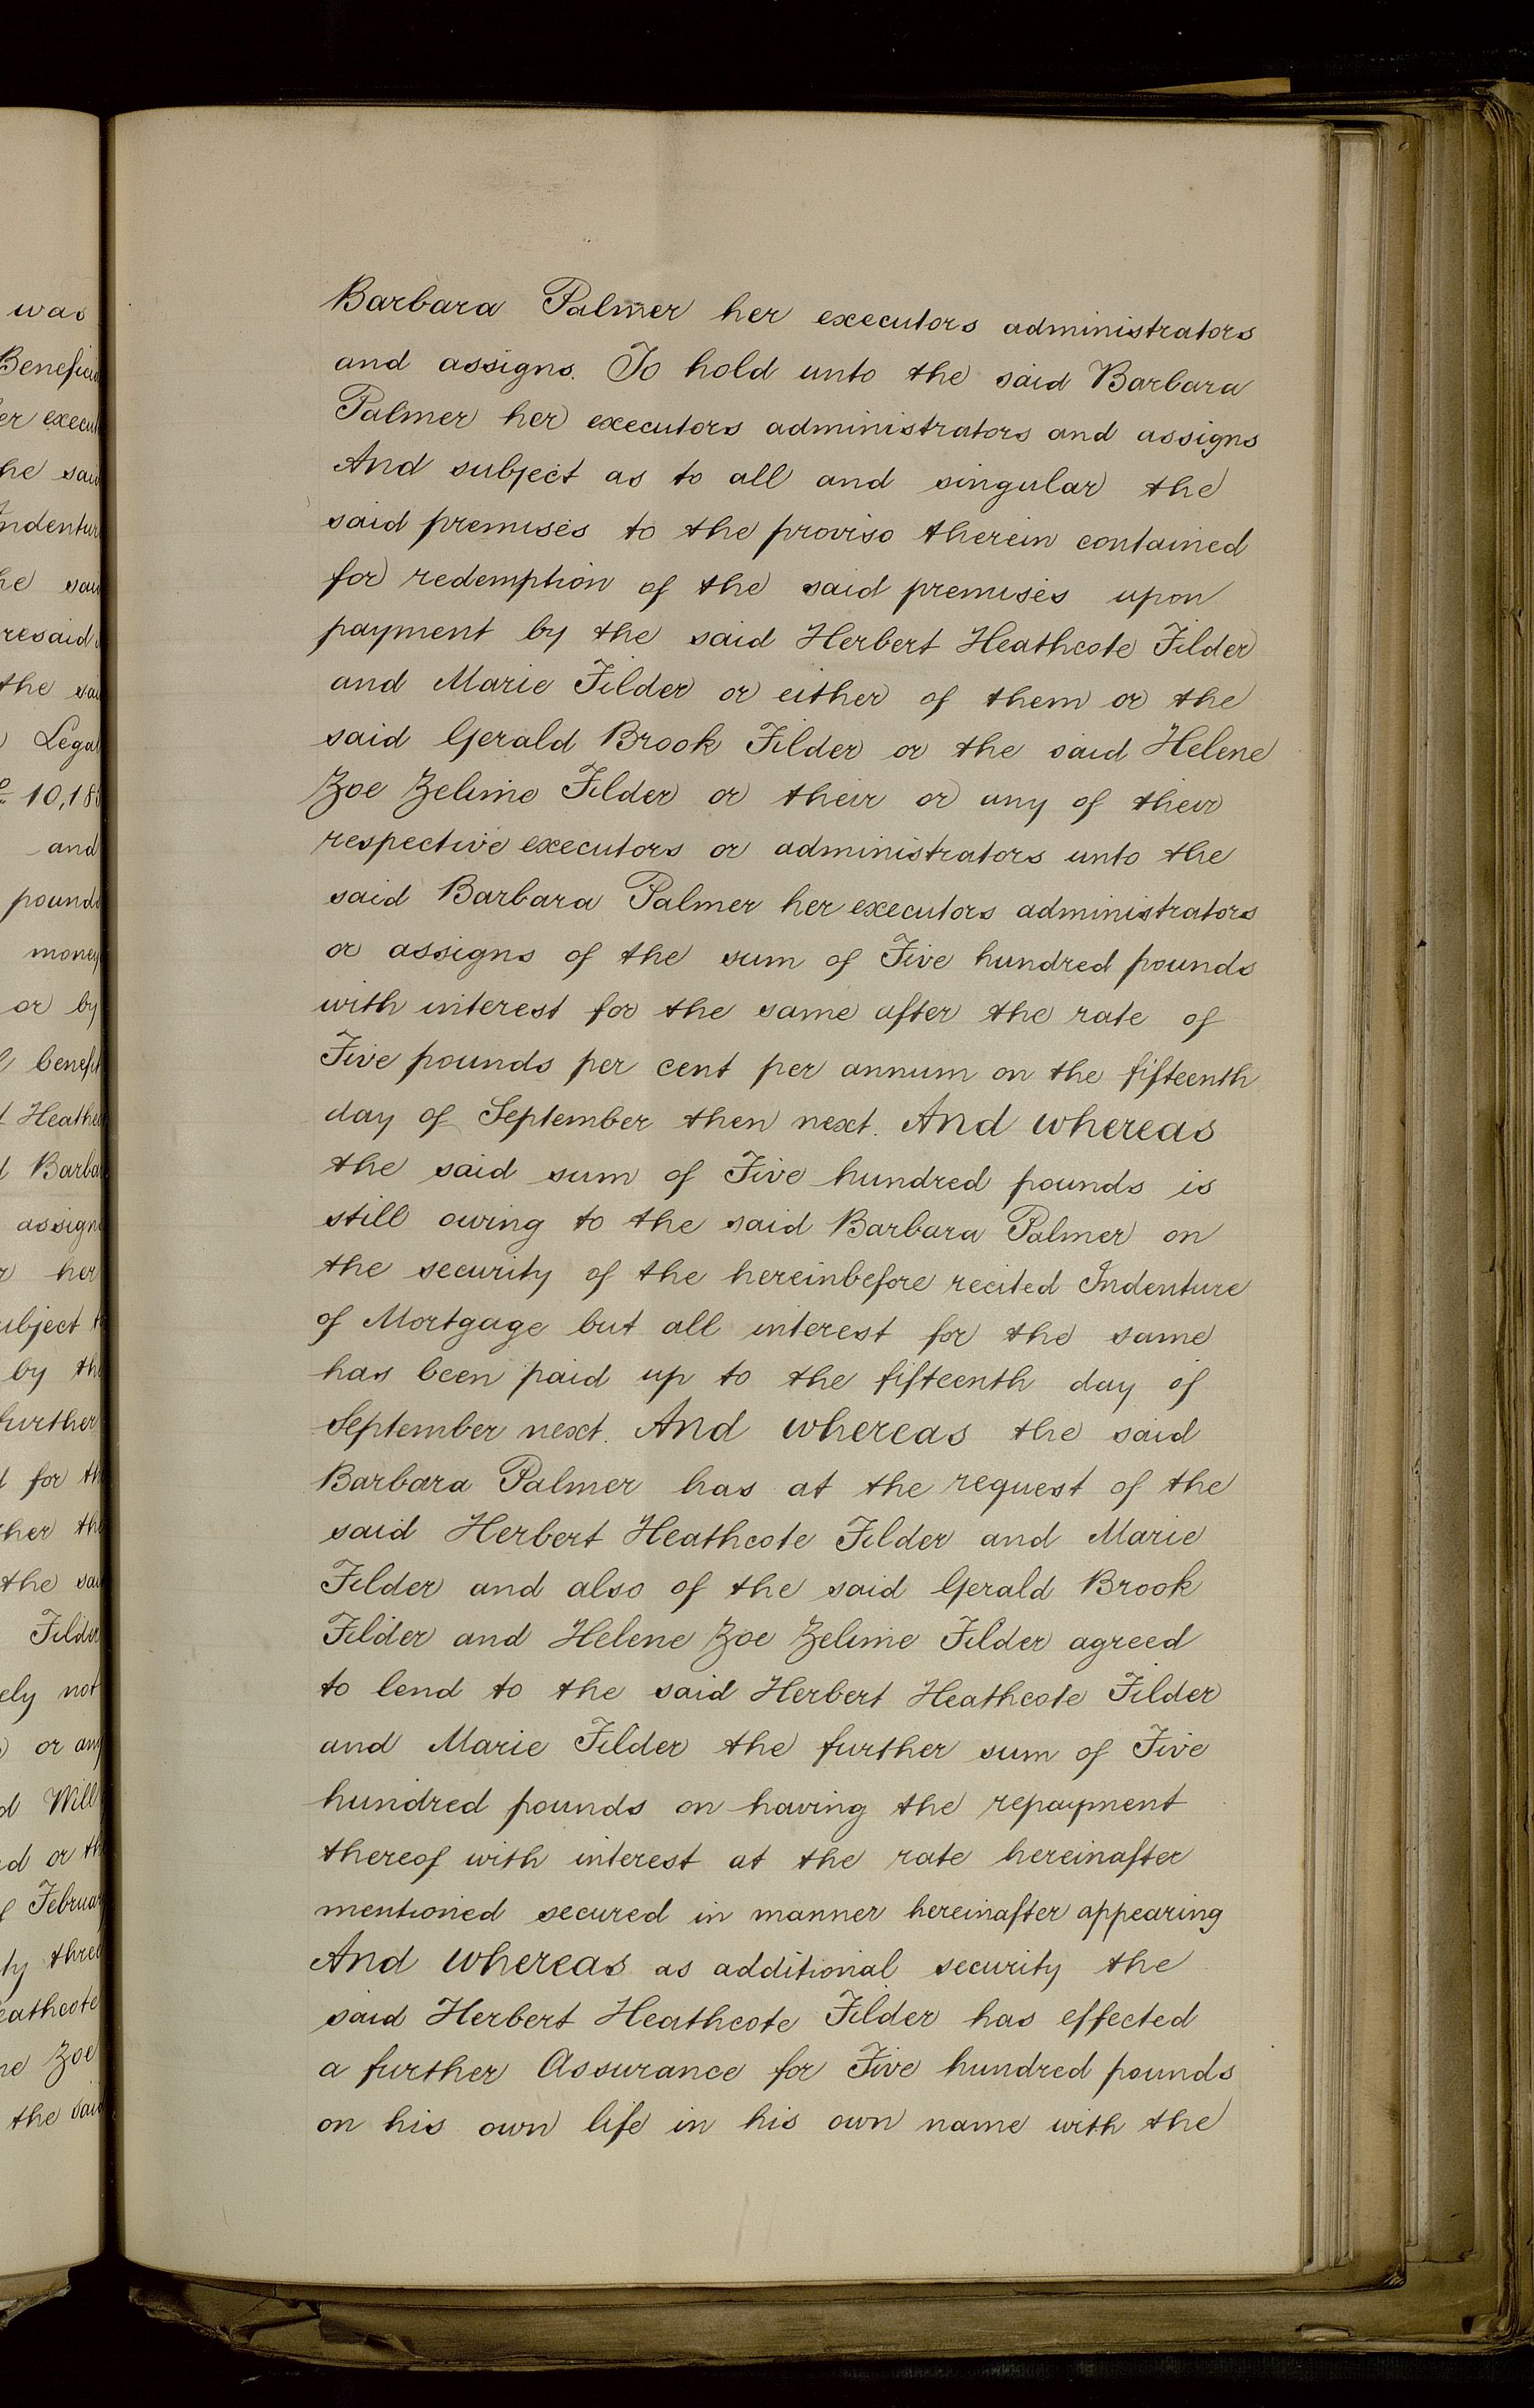 was
Barbara Palmer her executors administrators
and assigns. To hold unto the said Barbara
Palmer her executors administrators and assigns
And subject as to all and singular the
said premises to the proviso therein contained
for redemption of the said premises upon
payment by the said Herbert Heathcote Filder
and Marie Filder or either of them or the
said Gerald Brook Filder or the said Helene
Zoe Zelime Filder or their or any of their
respective executors or administrators unto the
said Barbara Palmer her executors administrators
or assigns of the sum of Five hundred pounds
with interest for the same after the rate of
Five pounds per cent per annum on the fifteenth
day of September then next. And whereas
the said sum of Five hundred pounds is
still owing to the said Barbara Palmer on
the security of the hereinbefore recited Indenture
of Mortgage but all interest for the same
has been paid up to the fifteenth day of
September next. And whereas the said
Barbara Palmer has at the request of the
said Herbert Heathcote Filder and Marie
Filder and also of the said Gerald Brook
Filder and Helene Zoe Zelime Filder agreed
to lend to the said Herbert Heathcote Filder
and Marie Filder the further sum of Five
hundred pounds on having the repayment
thereof with interest at the rate hereinafter
mentioned secured in manner hereinafter appearing
And whereas as additional security the
said Herbert Heathcote Filder has effected
a further Assurance for Five hundred pounds
on his own life in his own name with the